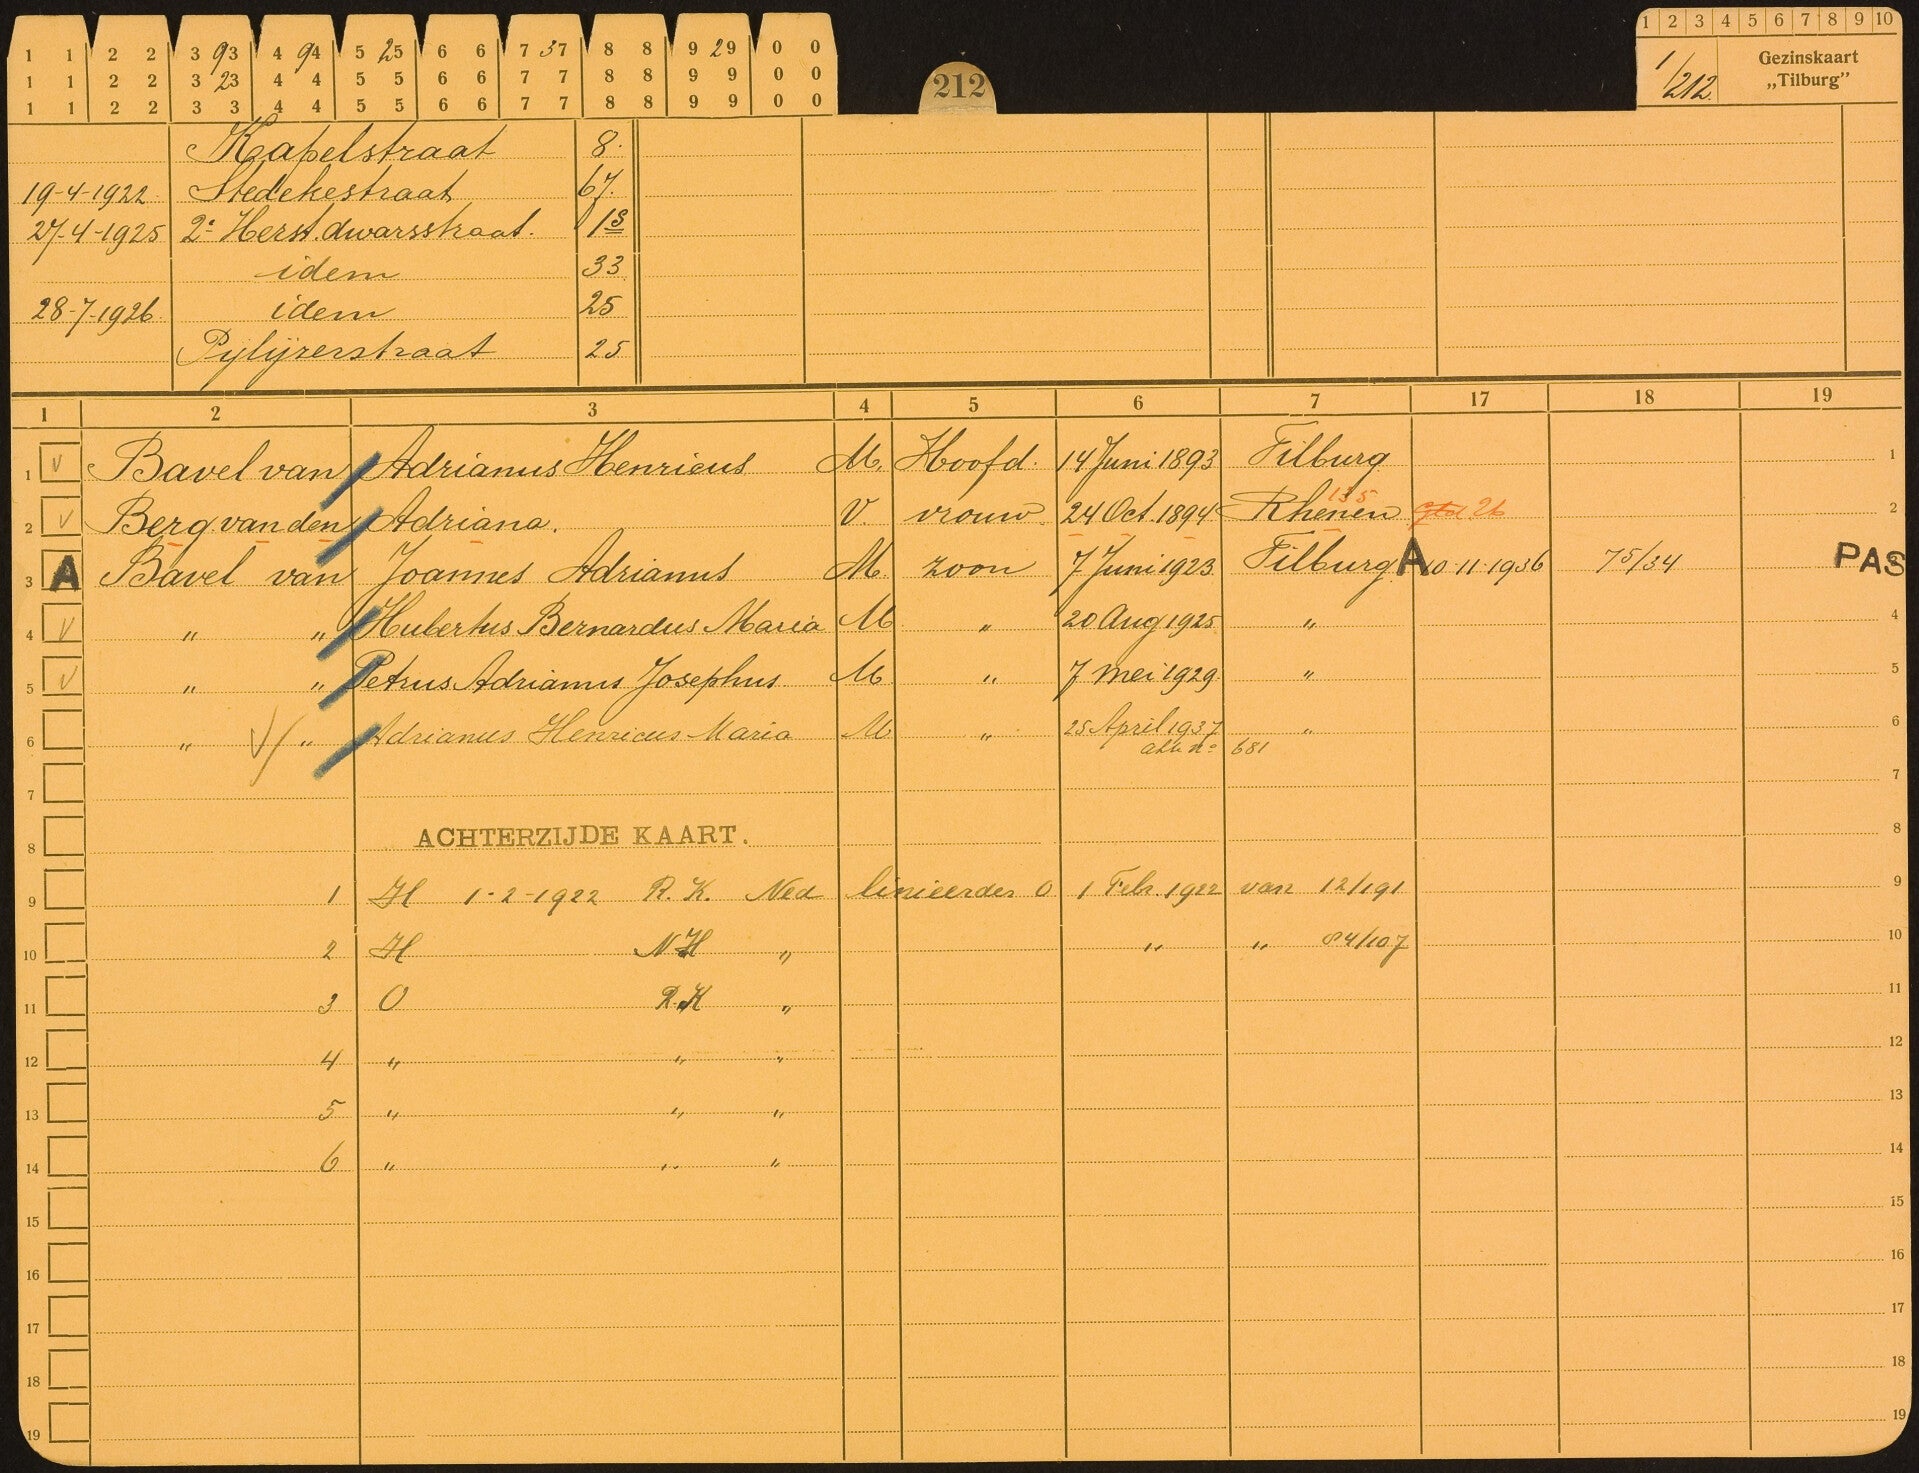 1 1 2 2 3 93 4 94 5 25 6 6 7 37 8 8 9 29 0 0
1 1 2 2 3 23 4 4 5 5 6 6 7 7 8 8 9 9 0 0
1 1 2 2 3 3 4 4 5 5 6 6 7 7 8 8 9 9 0 0
212
1 2 3 4 5 6 7 8 9 10
1/212 Gezinskaart
„Tilburg”
Kapelstraat 8.
19-4-1922 Stedekestraat 67.
27-4-1925 2e Herst.dwarsstraat. 18
idem 33
28-7-1926 idem 25
Pylijzerstraat 25
1 2 3 4 5 6 7 17 18 19
1 v Bavel van Adrianus Henricus M. Hoofd. 14 Juni 1893 Tilburg 1
135
2 v Berg van den Adriana. V. vrouw 24 Oct. 1894 Rhenen 26 2
3 A Bavel van Joannes Adrianus M zoon 7 Juni 1923 Tilburg A 10 11 1936 75/34 PAS
4 v " " Hubertus Bernardus Maria M " 20 Aug 1925 " 4
5 v " " Petrus Adrianus Josephus M " 7 mei 1929 " 5
6 " v/ " Adrianus Henricus Maria M " 25 April 1937 " 6
akn no 681
7 7
8 ACHTERZIJDE KAART. 8
9 1 H 1-2-1922 R.K. Ned linieerder O 1 Febr. 1922 van 12/191 9
10 2 H NH " " " 84/107 10
11 3 O R.K " 11
12 4 " " " 12
13 5 " " " 13
14 6 " " " 14
15 15
16 16
17 17
18 18
19 19